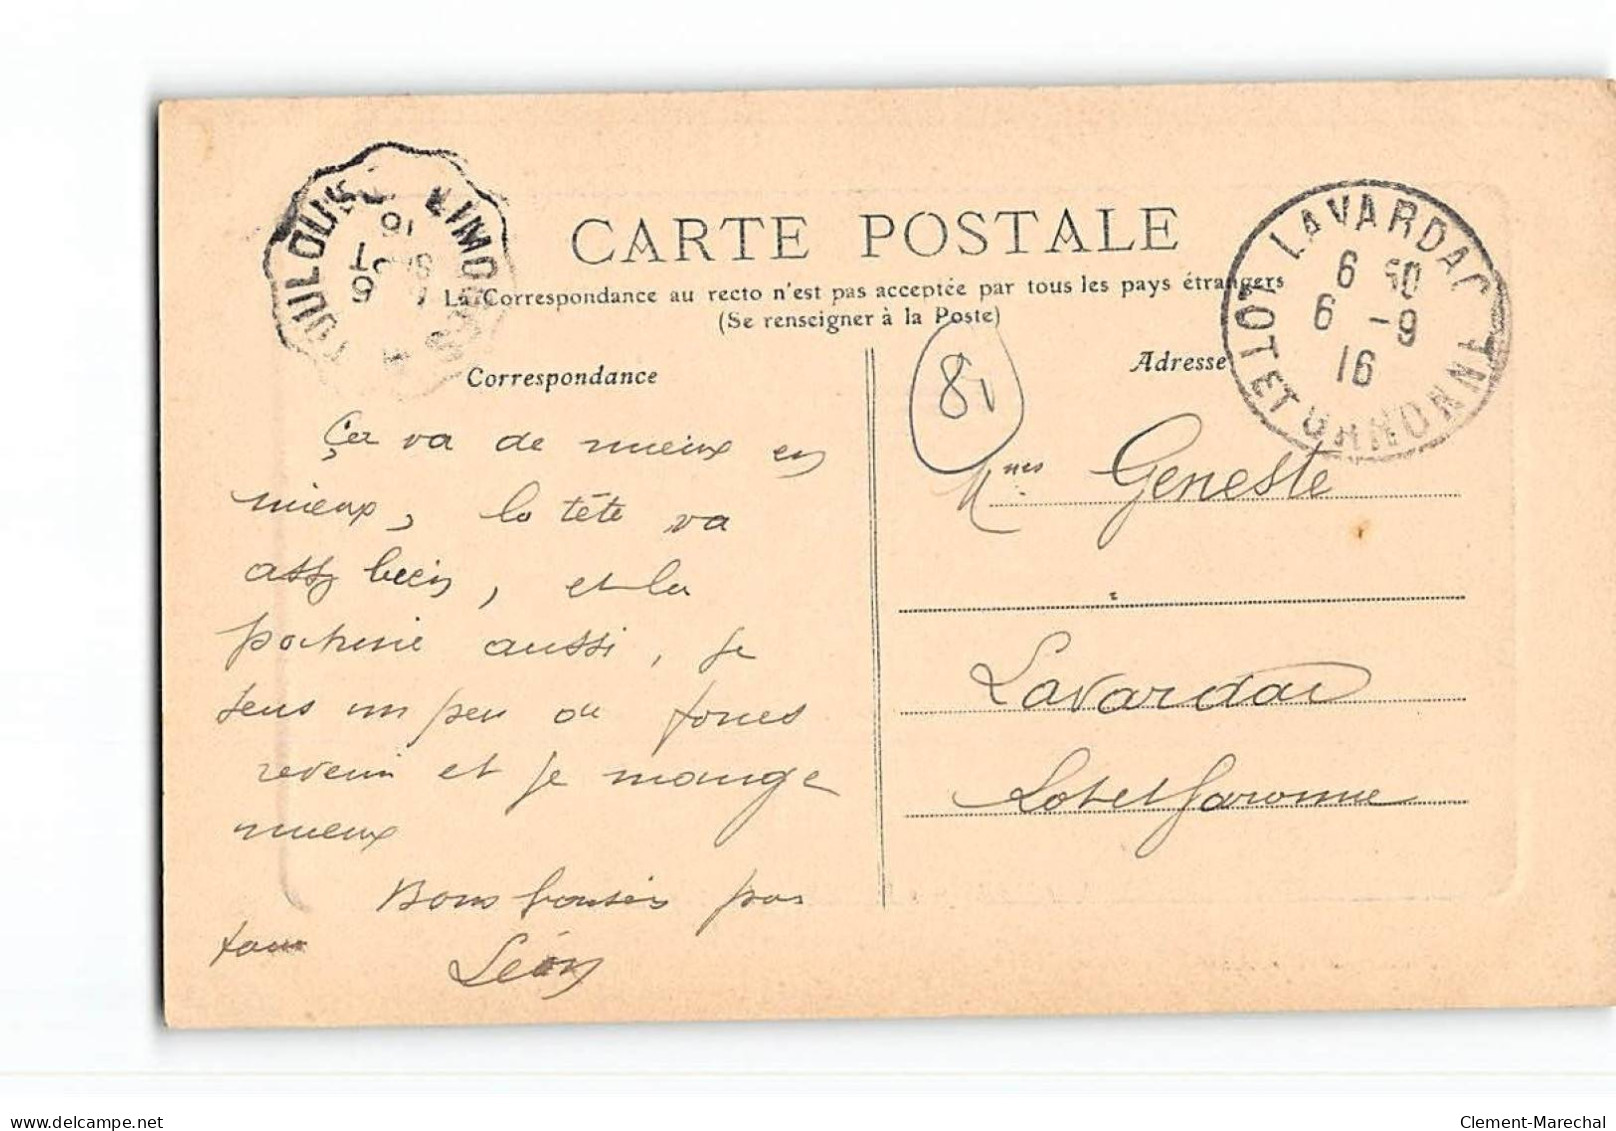 CARTE POSTALE
La Correspondance au recto n'est pas acceptée par tous les pays étrangers
(Se renseigner à la Poste)
Correspondance
Adresse
LAVARDAC
LOT ET GARONNE
6 50
6 -9
16
TOULOUSE
LIMOGES
81
Ça va de mieux en
mieux, la tête va
assez bien, et la
poitrine aussi, je
sens un peu de forces
revenir et je mange
mieux
Bons baisers pour
tous
Léon
Mmes Geneste
Lavardac
Lot et Garonne
delcampe.net
Clement-Marechal